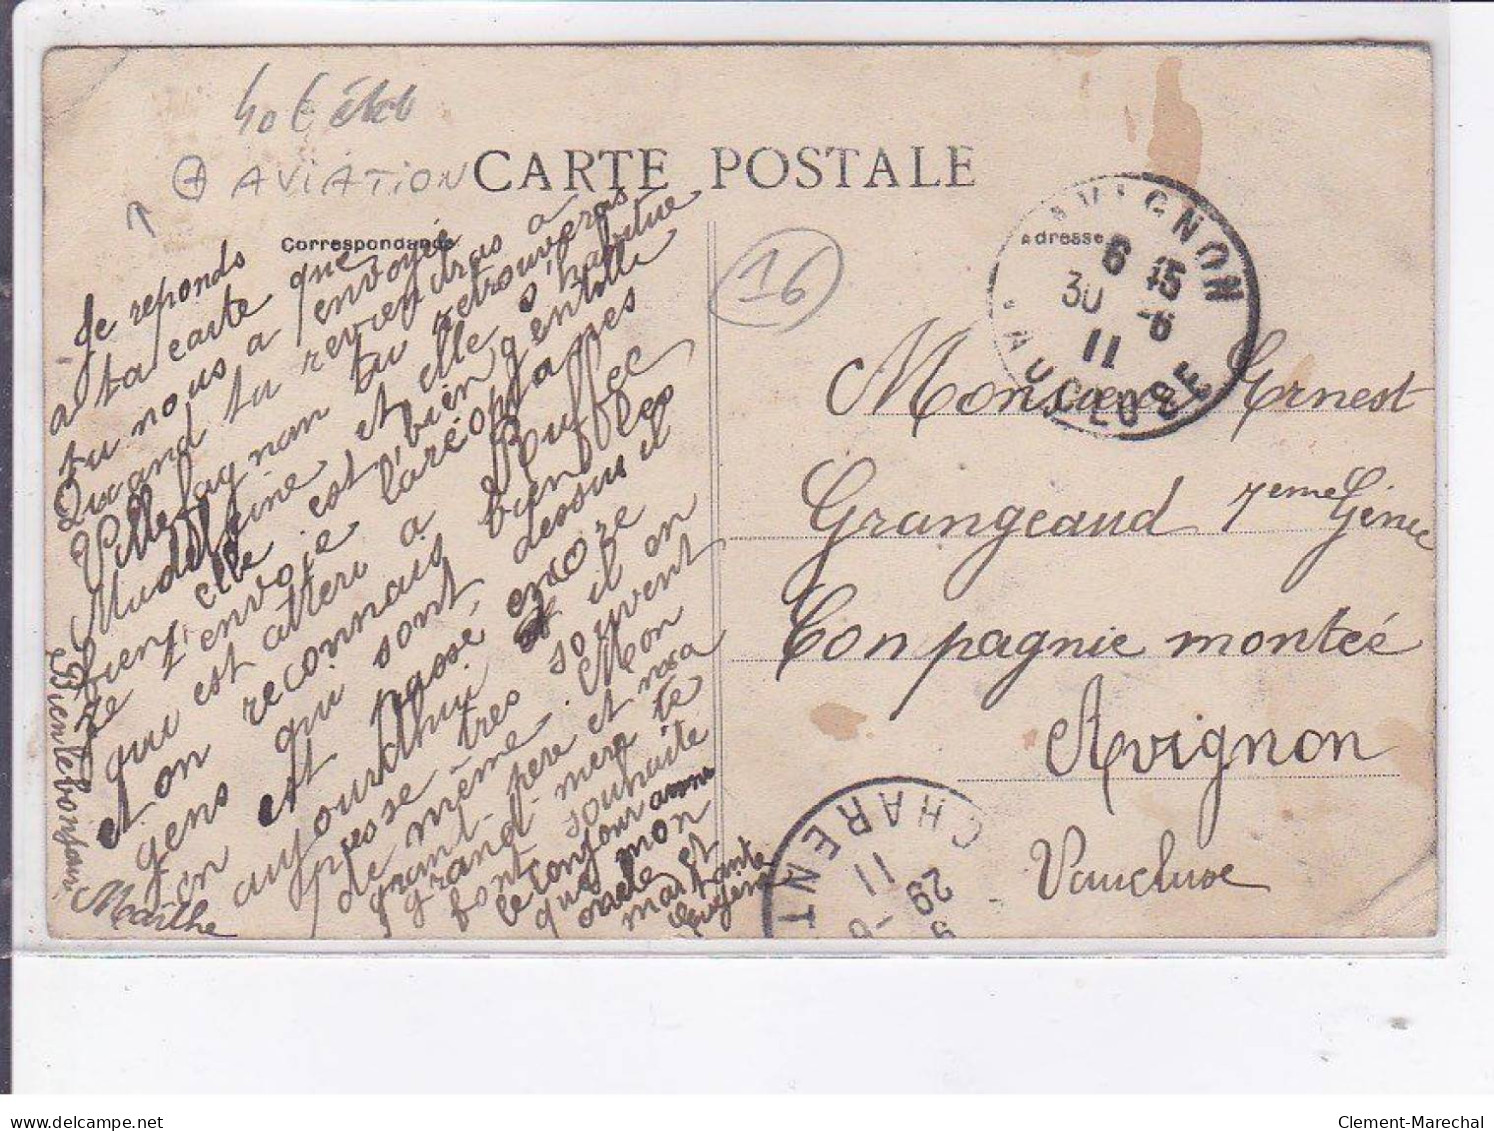 AVIATION
CARTE POSTALE
Correspondance
Adresse
16
AVIGNON
6 15
30 -6
11
VAUCLUSE
Je reponds
a ta carte que
tu nous a envoyé
Quand tu reviendras a
Villefagnan tu retrouveras
et elle s'habitue
bien, elle est bien gentille
Je t'envoie l'aréoplane
qui est atteri a Ruffec
et on reconnais bien les
gens qui sont dessus il
en est passé encore
aujourdhui et il en
passe tres souvent
de même. Mon
grant-père et ma
grand-mere te
font souhaite
le bonjour
que mon
oncle et
ma tante
Eugénie
Marthe
Bien le bonjour
Monsieur Ernest
Grangeaud 7eme Génie
Conpagnie monteé
Avignon
Vaucluse
CHARENT
29 -6
11
delcampe.net
Clement-Marechal